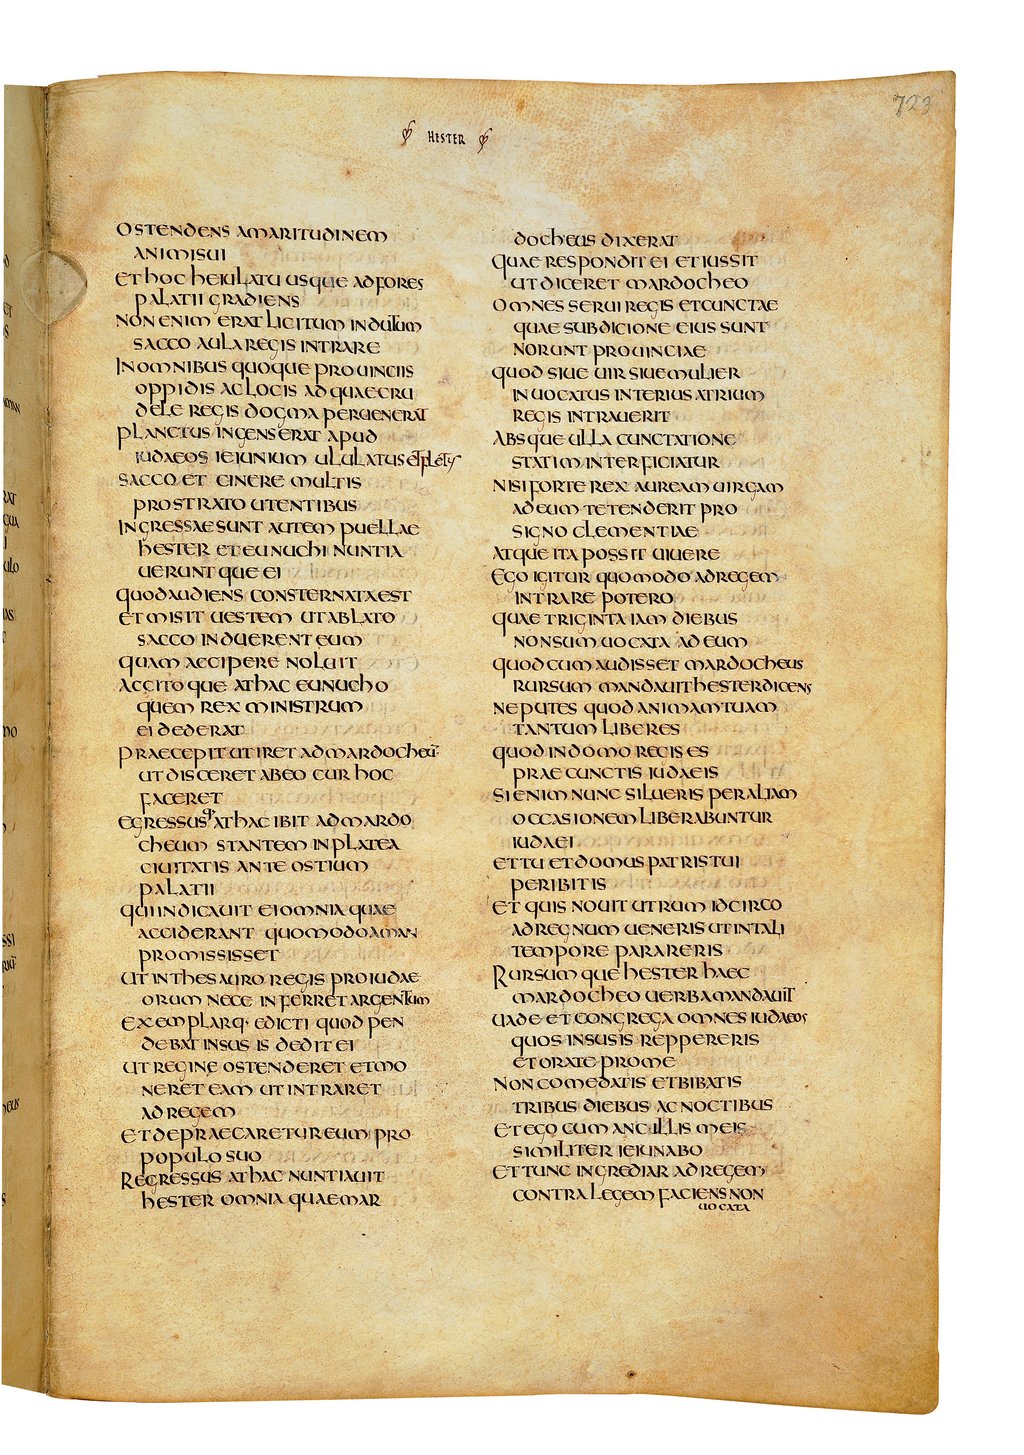 723
HESTER
OSTENDENS AMARITUDINEM
ANIMI SUI
ET HOC HEIULATU USQUE AD FORES
PALATII GRADIENS
NON ENIM ERAT LICITUM INDUTUM
SACCO AULA REGIS INTRARE
IN OMNIBUS QUOQUE PROUINCIIS
OPPIDIS AC LOCIS AD QUAE CRU
DELE REGIS DOGMA PERUENERAT
PLANCTUS INGENS ERAT APUD
IUDAEOS IEIUNIUM ULULATUS ET FLETUS
SACCO ET CINERE MULTIS
PRO STRATO UTENTIBUS
INGRESSAE SUNT AUTEM PUELLAE
HESTER ET EUNUCHI NUNTIA
UERUNTQUE EI
QUOD AUDIENS CONSTERNATA EST
ET MISIT UESTEM UT ABLATO
SACCO INDUERENT EUM
QUAM ACCIPERE NOLUIT
ACCITOQUE ATHAC EUNUCHO
QUEM REX MINISTRUM
EI DEDERAT
PRAECEPIT UT IRET AD MARDOCHEU
UT DISCERET AB EO CUR HOC
FACERET
EGRESSUSQ ATHAC IBIT AD MARDO
CHEUM STANTEM IN PLATEA
CIUITATIS ANTE OSTIUM
PALATII
QUI INDICAUIT EI OMNIA QUAE
ACCIDERANT QUOMODO AMAN
PROMISISSET
UT IN THESAURO REGIS PRO IUDAE
ORUM NECE INFERRET ARGENTUM
EXEMPLARQ· EDICTI QUOD PEN
DEBAT IN SUSIS DEDIT EI
UT REGINE OSTENDERET ET MO
NERET EAM UT INTRARET
AD REGEM
ET DEPRAECARETUR EUM PRO
POPULO SUO
REGRESSUS ATHAC NUNTIAUIT
HESTER OMNIA QUAE MAR
DOCHEUS DIXERAT
QUAE RESPONDIT EI ET IUSSIT
UT DICERET MARDOCHEO
OMNES SERUI REGIS ET CUNCTAE
QUAE SUB DICIONE EIUS SUNT
NORUNT PROUINCIAE
QUOD SIUE UIR SIUE MULIER
INUOCATUS INTERIUS ATRIUM
REGIS INTRAUERIT
ABSQUE ULLA CUNCTATIONE
STATIM INTERFICIATUR
NISI FORTE REX AUREAM UIRGAM
AD EUM TETENDERIT PRO
SIGNO CLEMENTIAE
ATQUE ITA POSSIT UIUERE
EGO IGITUR QUOMODO AD REGEM
INTRARE POTERO
QUAE TRIGINTA IAM DIEBUS
NON SUM UOCATA AD EUM
QUOD CUM AUDISSET MARDOCHEUS
RURSUM MANDAUIT HESTER DICENS
NE PUTES QUOD ANIMAM TUAM
TANTUM LIBERES
QUOD IN DOMO REGIS ES
PRAE CUNCTIS IUDAEIS
SI ENIM NUNC SILUERIS PER ALIAM
OCCASIONEM LIBERABUNTUR
IUDAEI
ET TU ET DOMUS PATRIS TUI
PERIBITIS
ET QUIS NOUIT UTRUM IDCIRCO
AD REGNUM UENERIS UT IN TALI
TEMPORE PARARERIS
RURSUMQUE HESTER HAEC
MARDOCHEO UERBA MANDAUIT
UADE ET CONGREGA OMNES IUDAEOS
QUOS IN SUSIS REPPERERIS
ET ORATE PRO ME
NON COMEDATIS ET BIBATIS
TRIBUS DIEBUS AC NOCTIBUS
ET EGO CUM ANCILLIS MEIS
SIMILITER IEIUNABO
ET TUNC INGREDIAR AD REGEM
CONTRA LEGEM FACIENS NON
UOCATA